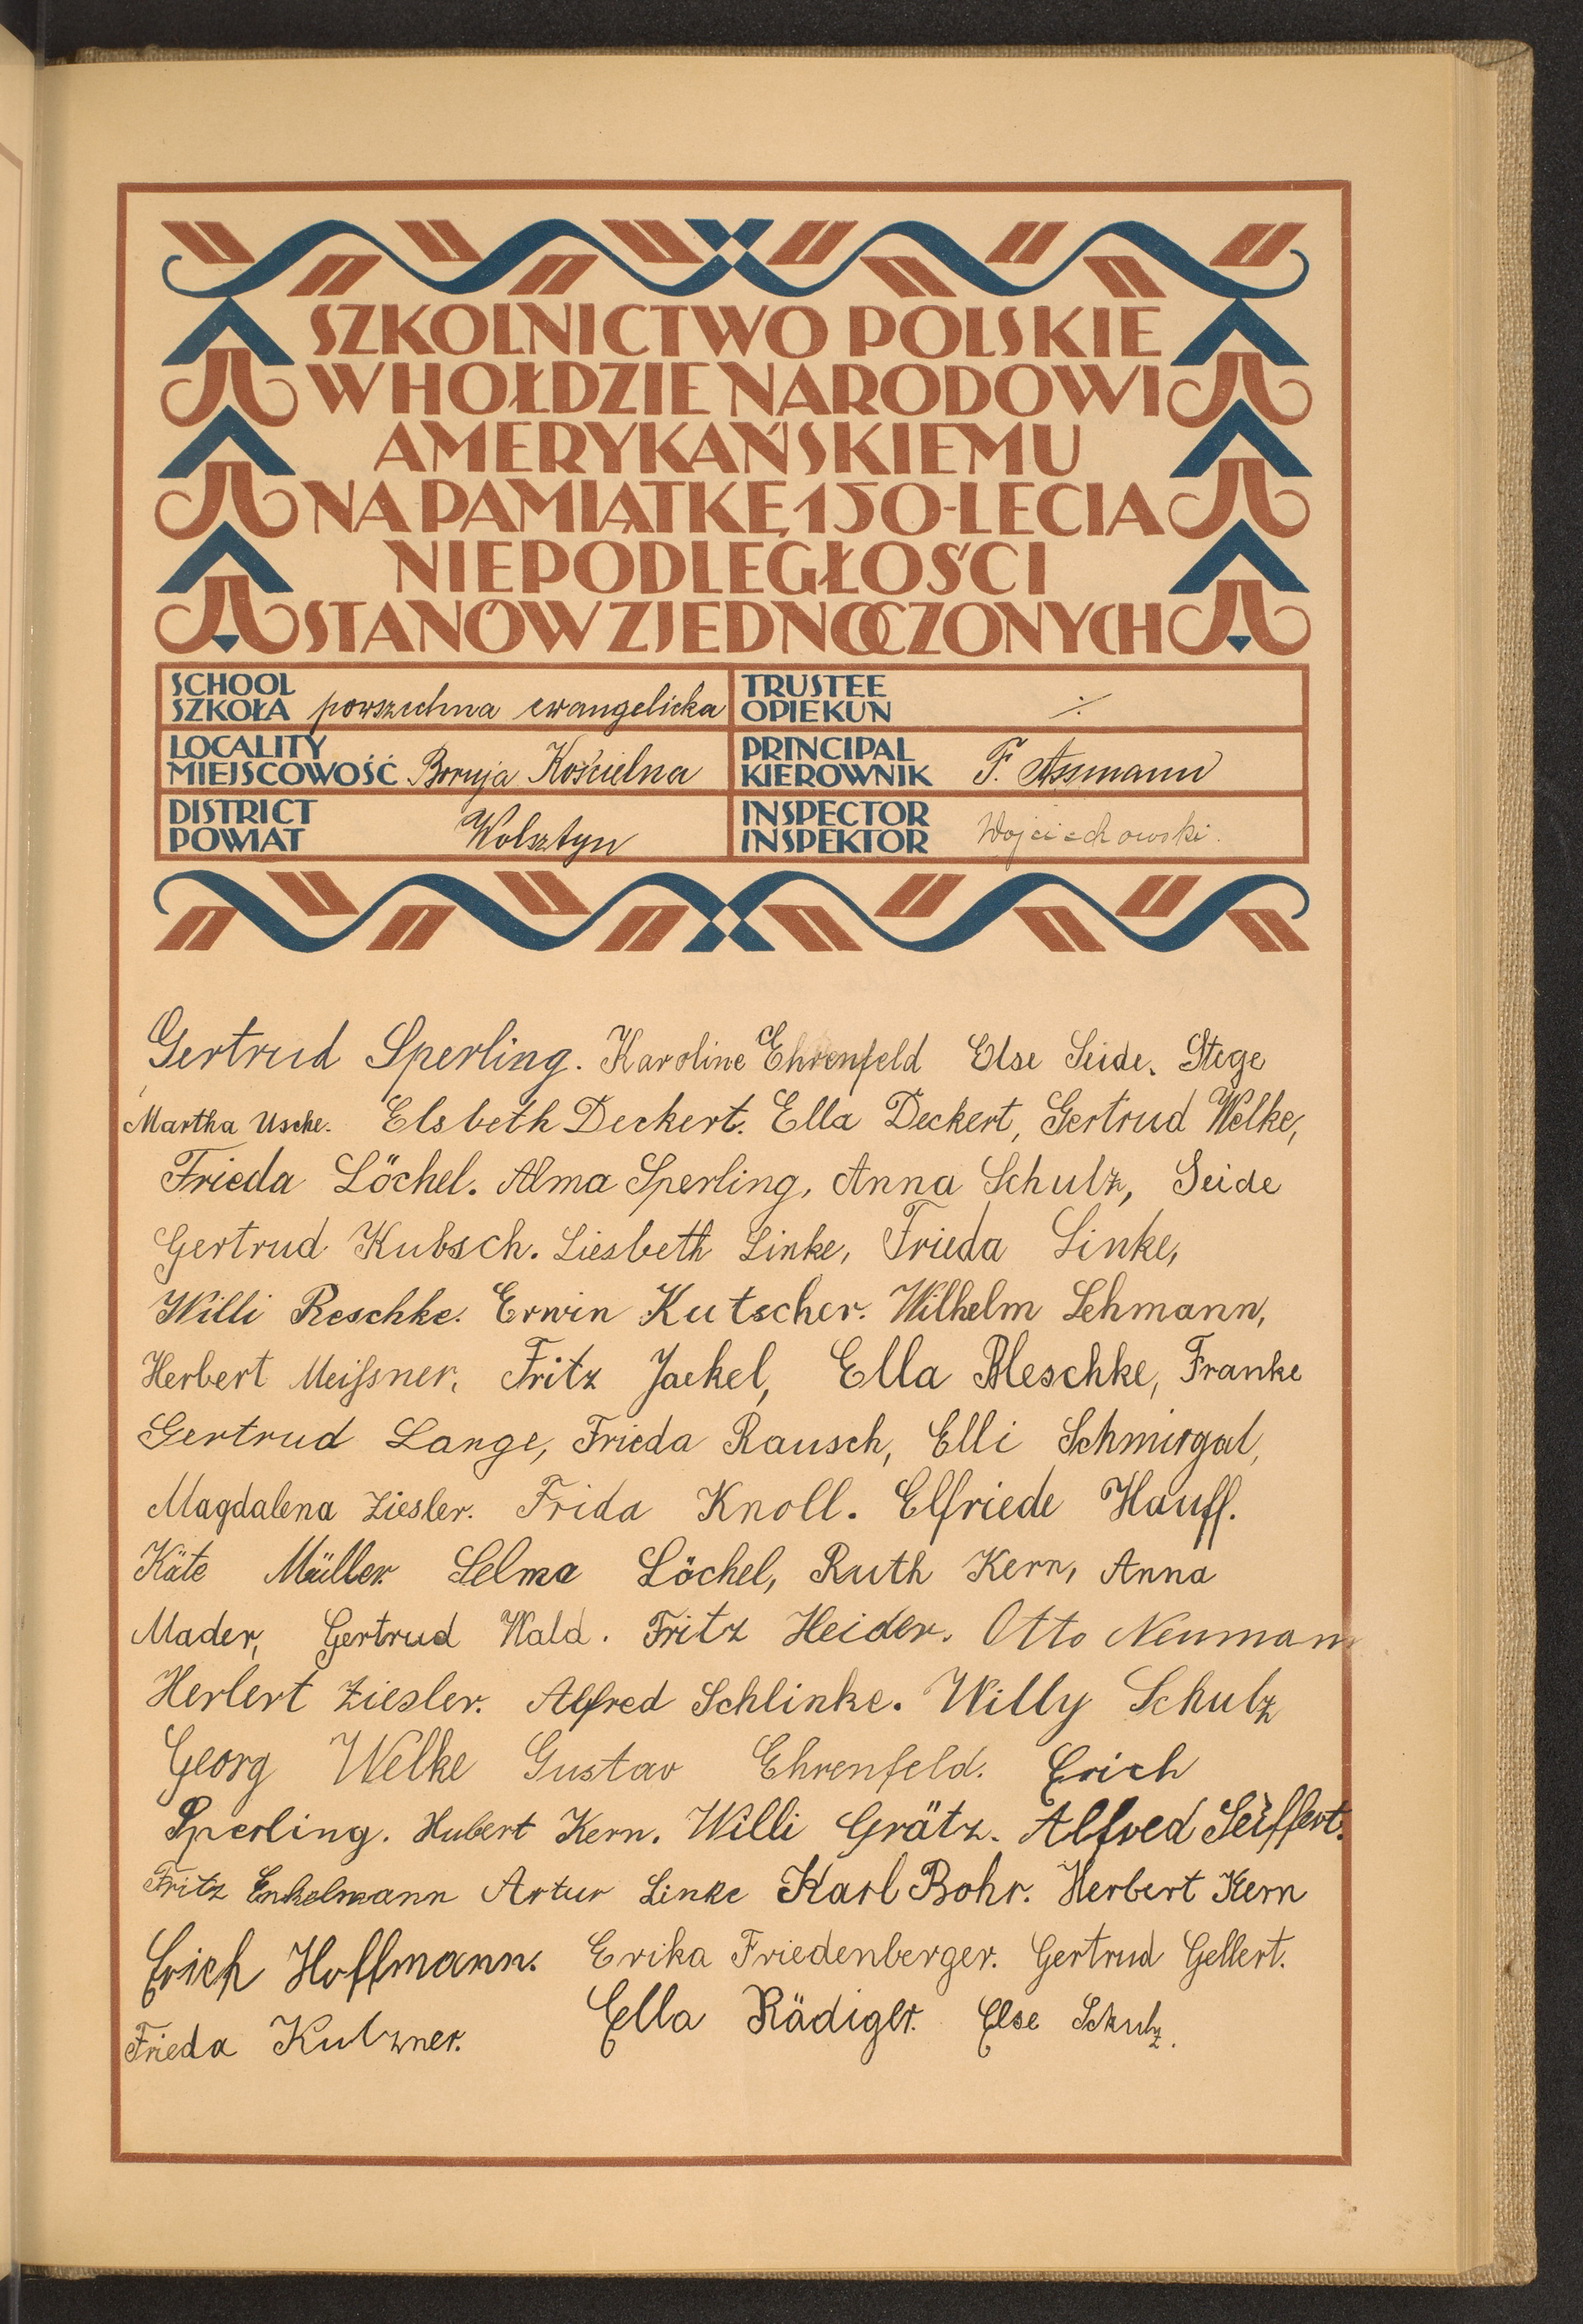 SZKOLNICTWO POLSKIE
W HOŁDZIE NARODOWI
AMERYKAŃSKIEMU
NA PAMIĄTKĘ 150-LECIA
NIEPODLEGŁOŚCI
STANÓW ZJEDNOCZONYCH
SCHOOL
SZKOŁA powszechna ewangelicka
TRUSTEE
OPIEKUN ⁒
LOCALITY
MIEJSCOWOŚĆ Boruja Kościelna
PRINCIPAL
KIEROWNIK F. Assmann
DISTRICT
POWIAT Wolsztyn
INSPECTOR
INSPEKTOR Wojciechowski.
Gertrud Sperling. Karoline Ehrenfeld Else Seide. Stege
Martha Usche. Elsbeth Deckert. Ella Deckert, Gertrud Welke,
Frieda Löchel. Alma Sperling, Anna Schulz, Seide
Gertrud Kubsch. Liesbeth Linke, Frieda Linke,
Willi Reschke. Erwin Kutscher. Wilhelm Lehmann,
Herbert Meißner, Fritz Jaekel, Ella Bleschke, Franke
Gertrud Lange, Frieda Rausch, Elli Schmirgal,
Magdalena Ziesler. Frida Knoll. Elfriede Hauff.
Käte Müller. Selma Löchel, Ruth Kern, Anna
Mader, Gertrud Wald. Fritz Heider. Otto Neumann
Herbert Ziesler. Alfred Schlinke. Willy Schulz
Georg Welke Gustav Ehrenfeld. Erich
Sperling. Hubert Kern. Willi Grätz. Alfred Seiffert.
Fritz Enkelmann Artur Linke Karl Bohr. Herbert Kern
Erich Hoffmann. Erika Friedenberger. Gertrud Gellert.
Frieda Kutzner. Ella Rädiger. Else Schulz.